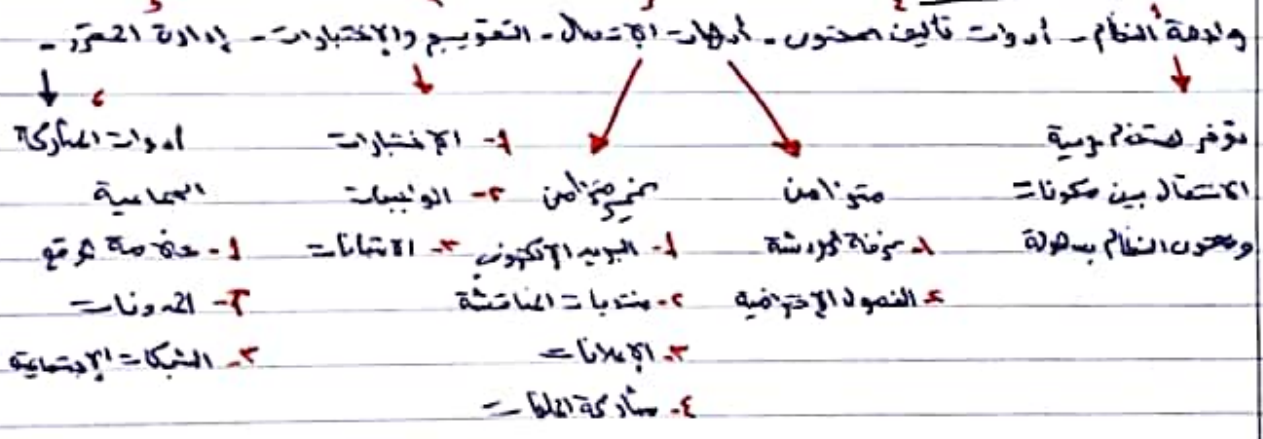 واجهة النظام - أدوات تأليف المحتوى - أدوات الاتصال - التقويم والاختبارات - إدارة المقرر -
توفر للمستخدم
الانتقال بين مكونات
ومحتوى النظام بسهولة
متزامن
١- غرفة الدردشة
٢- الفصول الافتراضية
غير متزامن
١- البريد الإلكتروني
٢- منتديات المناقشة
٣- الإعلانات
٤- مشاركة الملفات
١- الاختبارات
٢- الواجبات
٣- الاستبانات
أدوات المشاركة
الجماعية
١- موقع
٢- المدونات
٣- الشبكات الاجتماعية